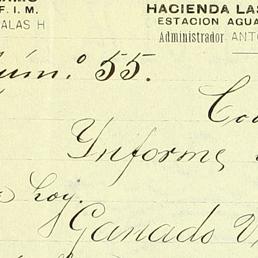 HACIENDA LAS
F. I. M.
ESTACION AGUA
ALAS H
Administrador ANTO
Núm.º 55.
Informe
hoy.
Ganado V